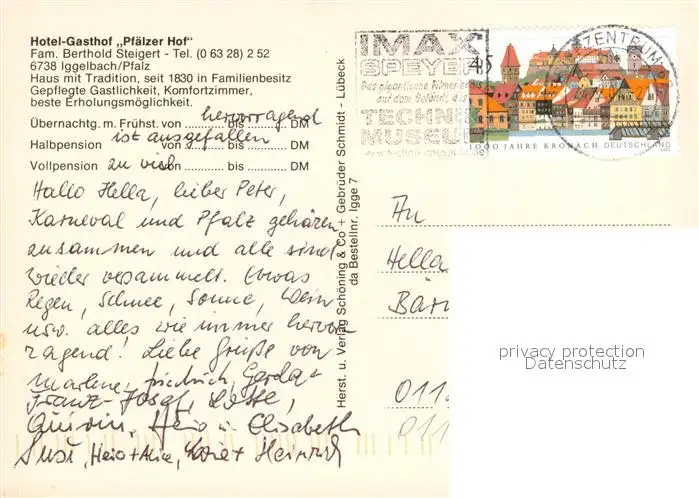 Hotel-Gasthof „Pfälzer Hof"
Fam. Berthold Steigert - Tel. (0 63 28) 2 52
6738 Iggelbach/Pfalz
Haus mit Tradition, seit 1830 in Familienbesitz
Gepflegte Gastlichkeit, Komfortzimmer,
beste Erholungsmöglichkeit.
Übernachtg. m. Frühst. von hervorragend bis DM
ist ausgefallen
Halbpension von bis DM
Vollpension zu viel von bis DM
Hallo Hella, lieber Peter,
Karneval und Pfalz gehören
zusammen und alle sind
wieder versammelt. Etwas
Regen, Schnee, Sonne, Wein
usw. alles wie immer hervor
ragend! Liebe Grüße von
Marlene, Friedrich, Gerda +
Franz-Josef, Lotte,
Quirin, Heio u. Elisabeth
Susi, Heio + Alice, + Heinrich
Herst. u. Verlag Schöning & Co + Gebrüder Schmidt - Lübeck
da Bestellnr. Igge 7
IMAX
SPEYER
Das gigantische Filmerlebnis
auf dem Gelände des
TECHNIK
MUSEUM
ZENTRUM
45
1000 JAHRE KRONACH DEUTSCHLAND
2003
An
Hella
011
011
privacy protection
Datenschutz